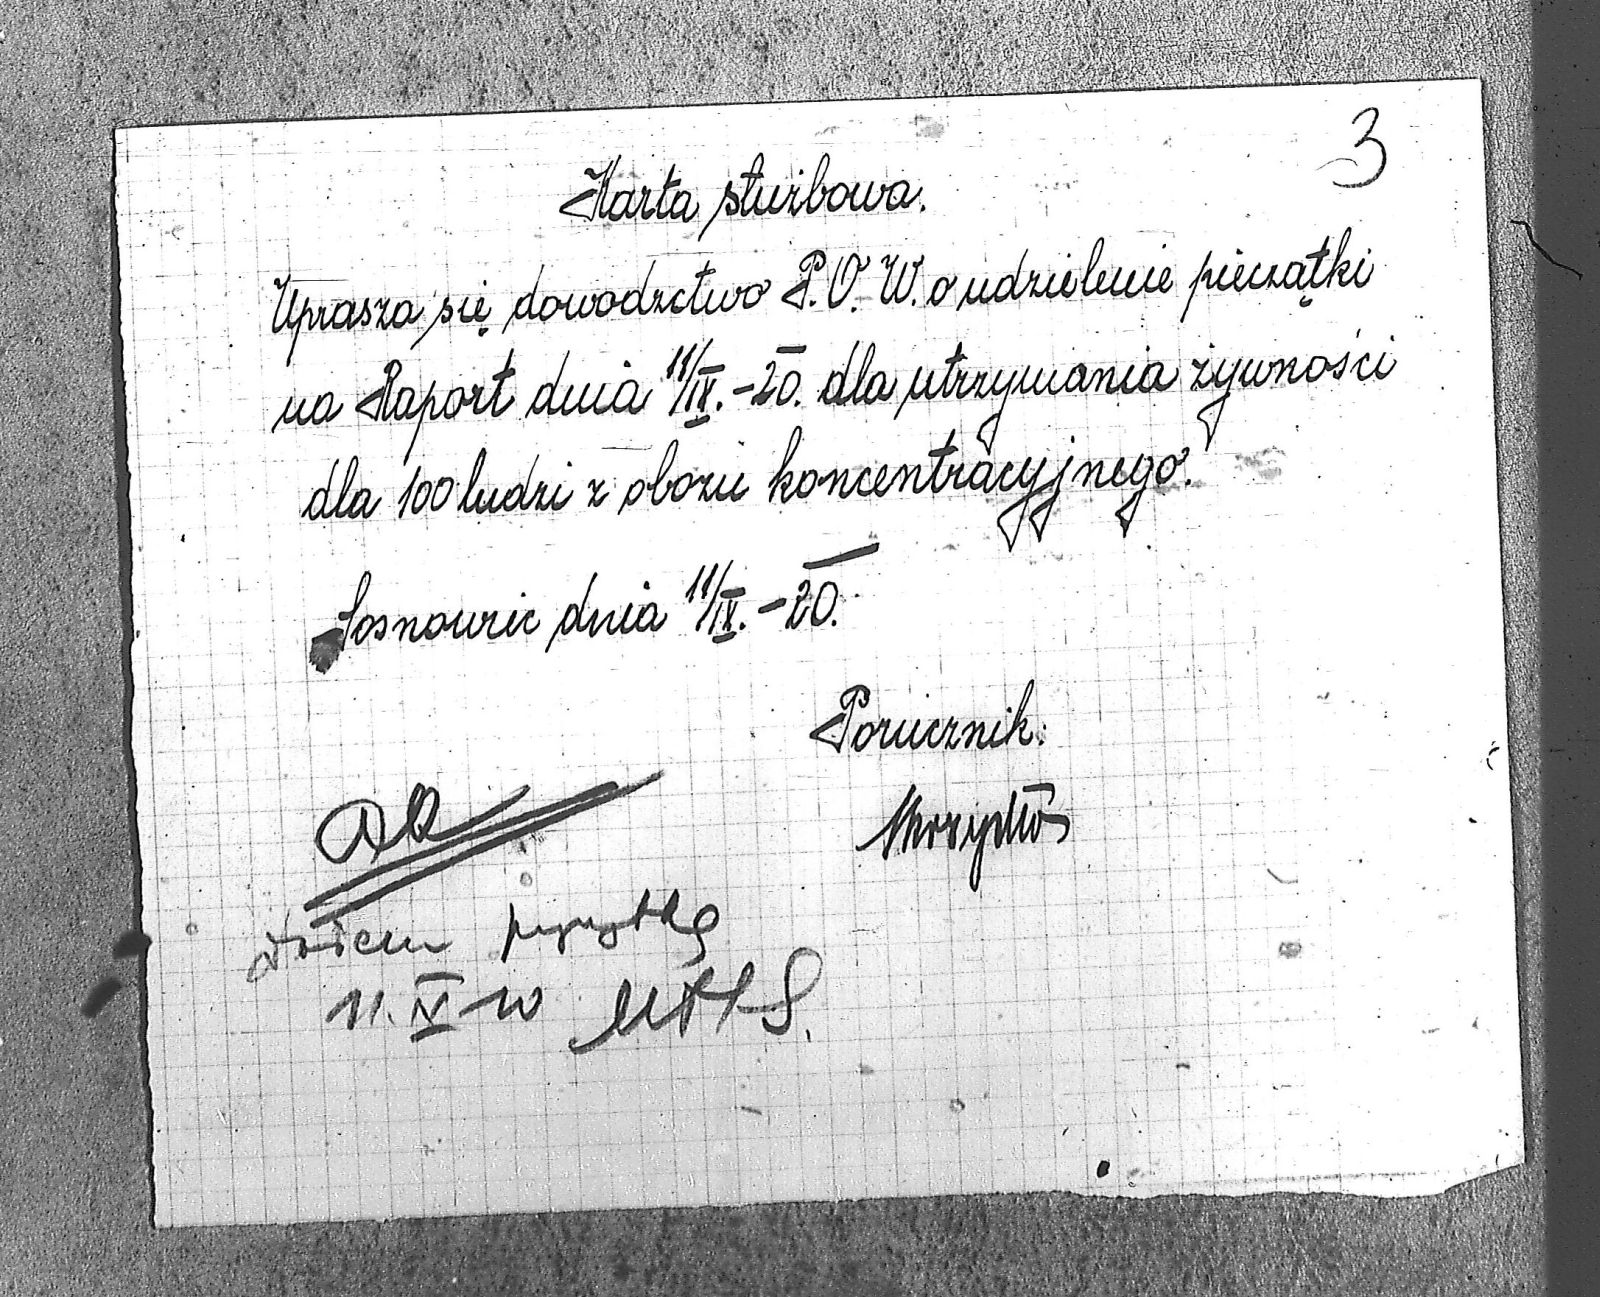 3
Karta służbowa.
Uprasza się dowodztwo P.O.W. o udzielenie pieczątki
na Raport dnia 11/IX.-20. dla utrzymania żywności
dla 100 ludzi z obozu koncentracyjnego.
Sosnowiec dnia 11/IX.-20.
Porucznik: